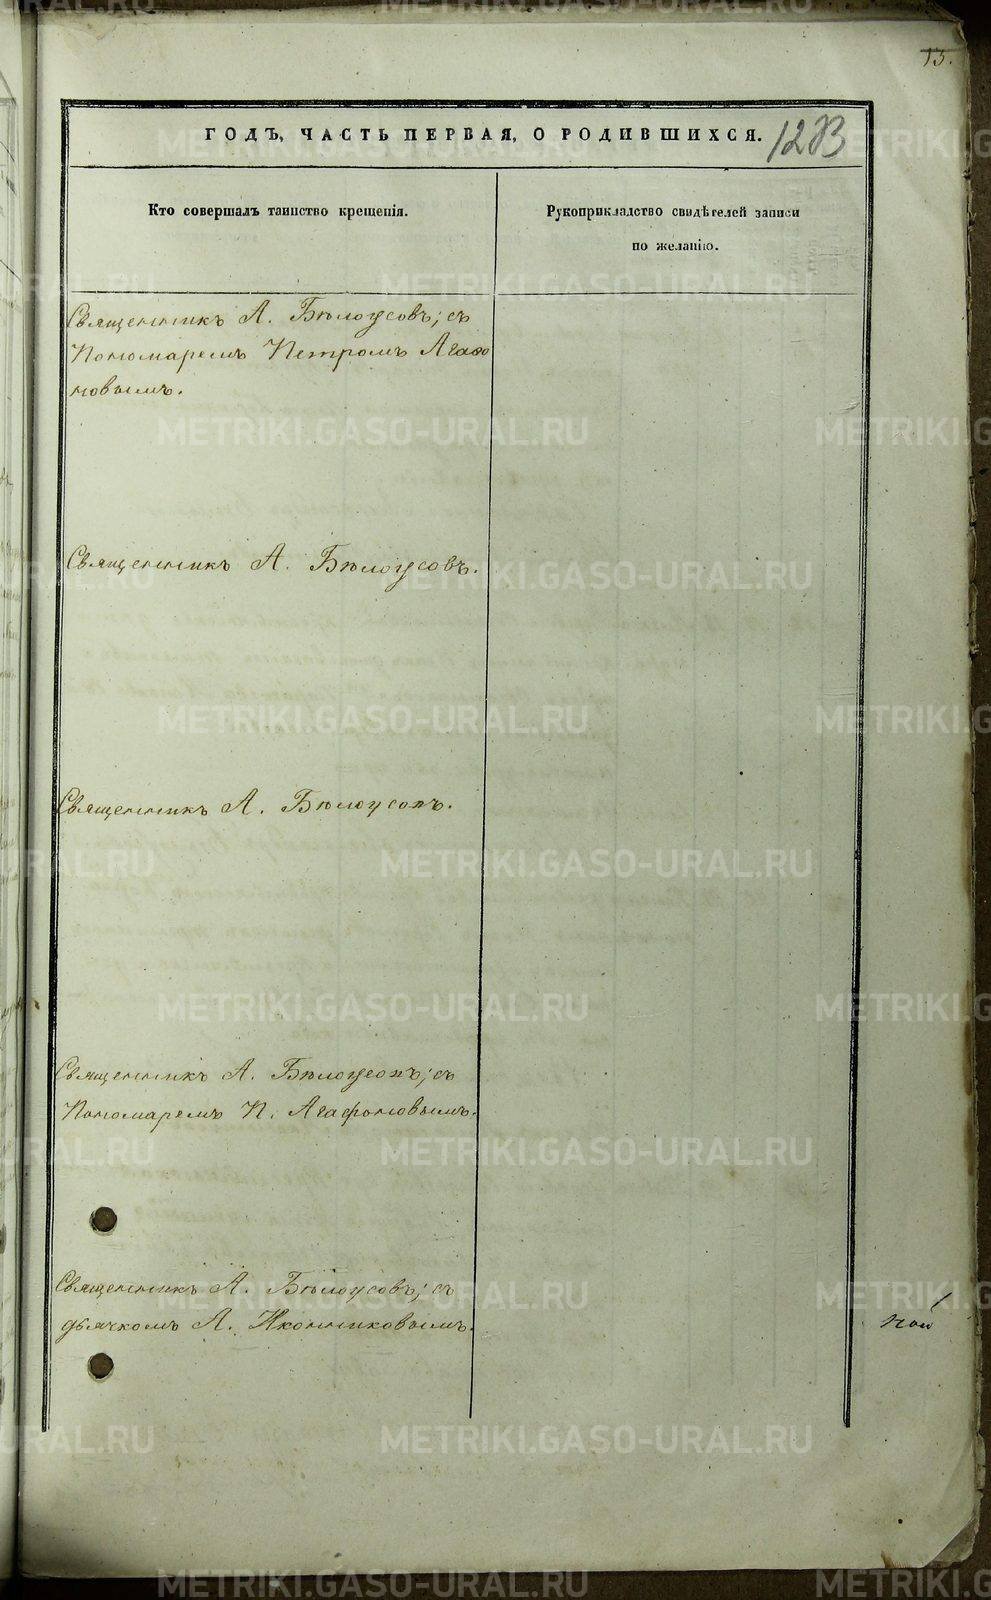 15.
ГОДЪ, ЧАСТЬ ПЕРВАЯ, О РОДИВШИХСЯ.
1283
Кто совершалъ таинство крещенія.
Рукоприкладство свидѣтелей записи
по желанію.
Священникъ А. Бѣлоусовъ; съ
Пономаремъ Петромъ Агафо
новымъ.
Священникъ А. Бѣлоусовъ.
Священникъ А. Бѣлоусовъ.
Священникъ А. Бѣлоусовъ; съ
Пономаремъ П. Агафоновымъ.
Священникъ А. Бѣлоусовъ; съ
дьячкомъ А. Иконниковымъ.
METRIKI.GASO-URAL.RU